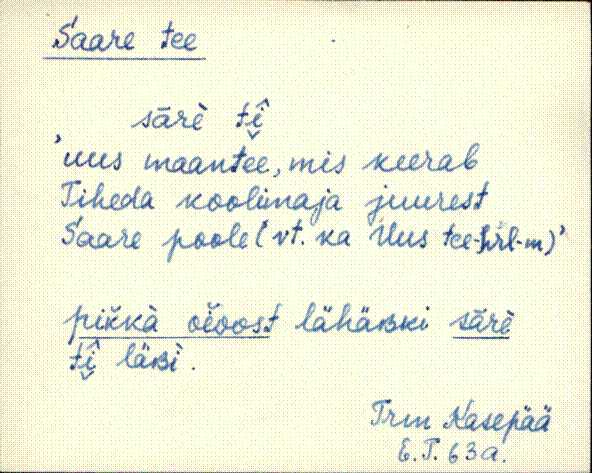 Saare tee
sārè tî̬
'uus maantee, mis keerab
Tiheda koolimaja juurest
Saare poole (vt. ka Uus tee-hrl-m)'
pikkà oioost lähäʙki sārè
tî̬ läʙì.
Trm Kasepää
E.T. 63a.